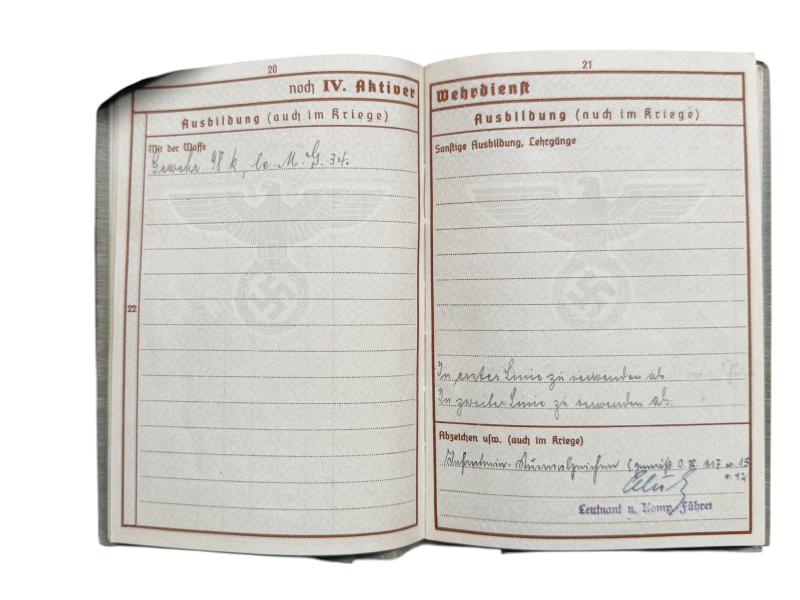 20
noch IV. Aktiver
Ausbildung (auch im Kriege)
Mit der Waffe
Gewehr 98 k, le. M. G. 34.
22
21
Wehrdienst
Ausbildung (auch im Kriege)
Sonstige Ausbildung, Lehrgänge
In erster Linie zu verwenden als
In zweiter Linie zu verwenden als
Abzeichen usw. (auch im Kriege)
Infanterie-Sturmabzeichen (gemäß O.K.
Leutnant u. Komp. Führer